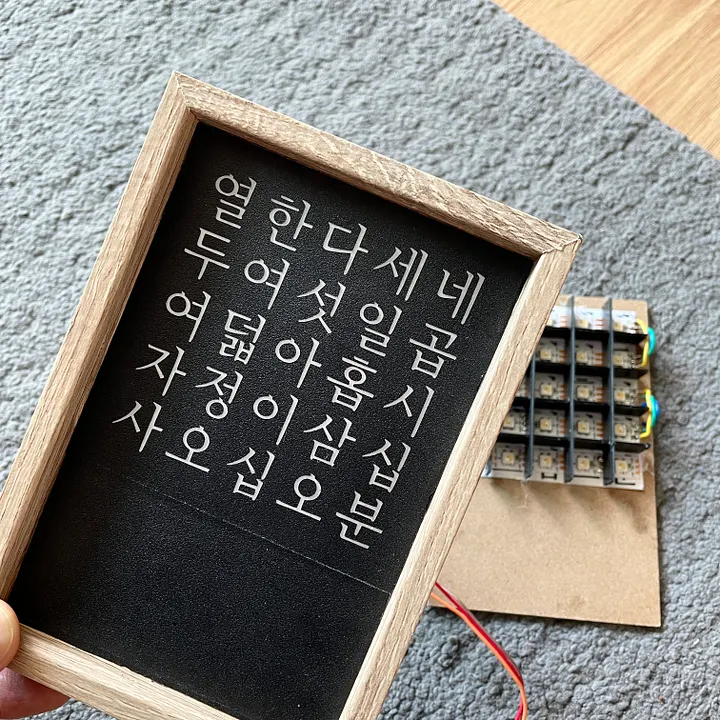 열한다세네
두여섯일곱
여덟아홉시
자정이삼십
사오십오분